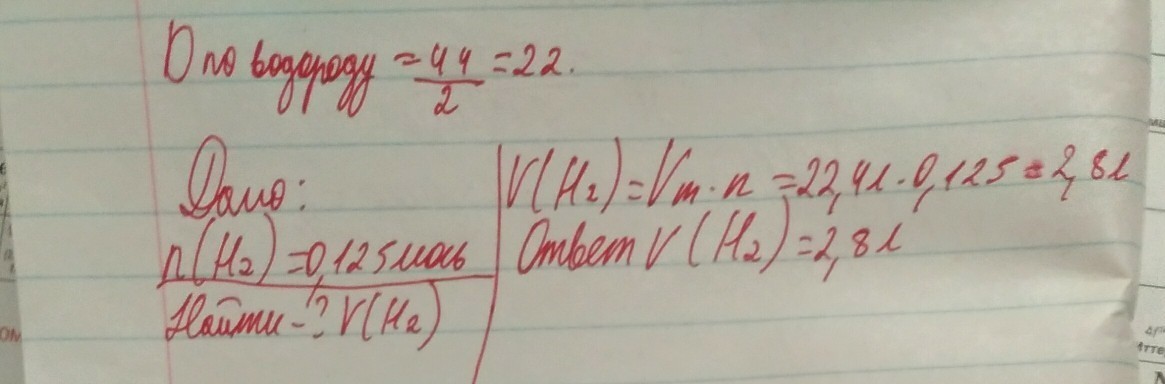 D по водороду = 44/2 = 22.
Дано:
n(H2) = 0,125 моль
Найти - ? V(H2)
V(H2) = Vm · n = 22,4л · 0,125 = 2,8л
Ответ V(H2) = 2,8л